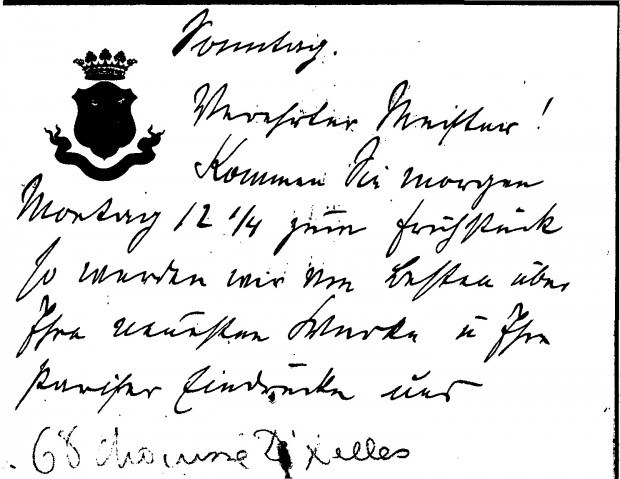 Sonntag.
Verehrter Meister!
Kommen Sie morgen
Montag 12 1/4 zum Frühstück
so werden wir am besten über
Ihre neuesten Werke u Ihre
Pariser Eindrücke uns
68 chaussée D'ixelles